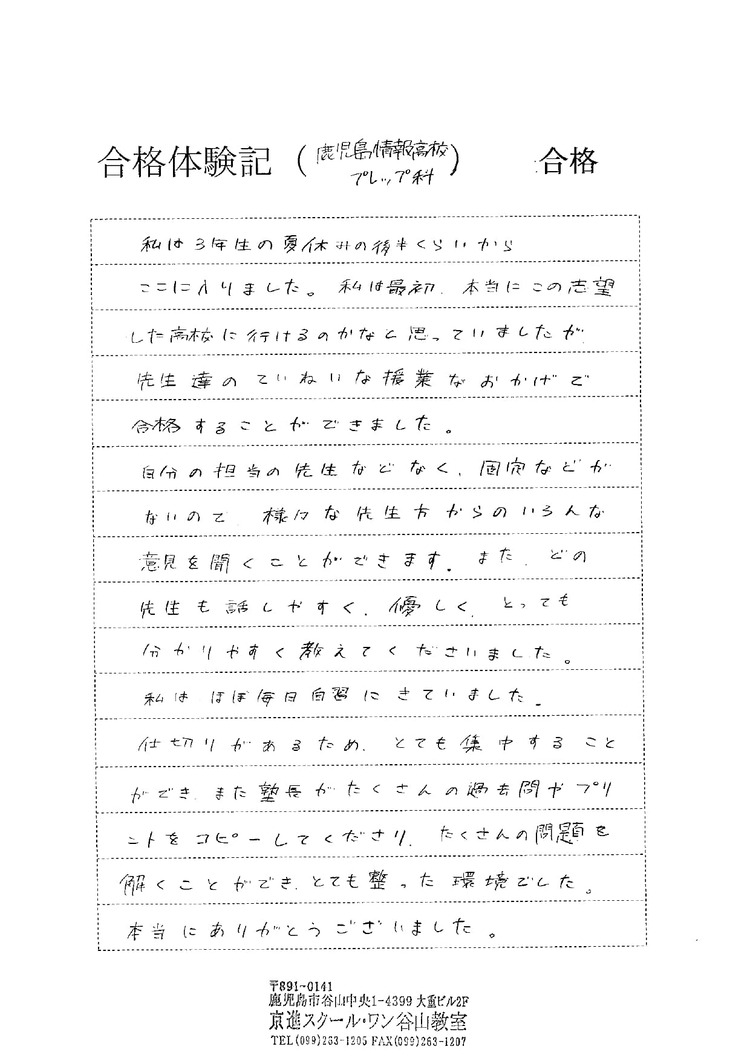 合格体験記（鹿児島情報高校
プレップ科）
合格
私は3年生の夏休みの後半くらいから
ここに入りました。私は最初、本当にこの志望
した高校に行けるのかなと思っていましたが
先生達のていねいな授業なおかげで
合格することができました。
自分の担当の先生などなく、固定などが
ないので、様々な先生方からのいろんな
意見を聞くことができます。また、どの
先生も話しやすく、優しく、とっても
分かりやすく教えてくださいました。
私は ほぼ毎日自習にきていました。
仕切りがあるため、とても集中すること
ができ、また塾長がたくさんの過去問やプリ
ントをコピーしてくださり、たくさんの問題を
解くことができ、とても整った環境でした。
本当にありがとうございました。
〒891-0141
鹿児島市谷山中央1-4399 大重ビル2F
京進スクール・ワン谷山教室
TEL(099)263-1205 FAX(099)263-1207